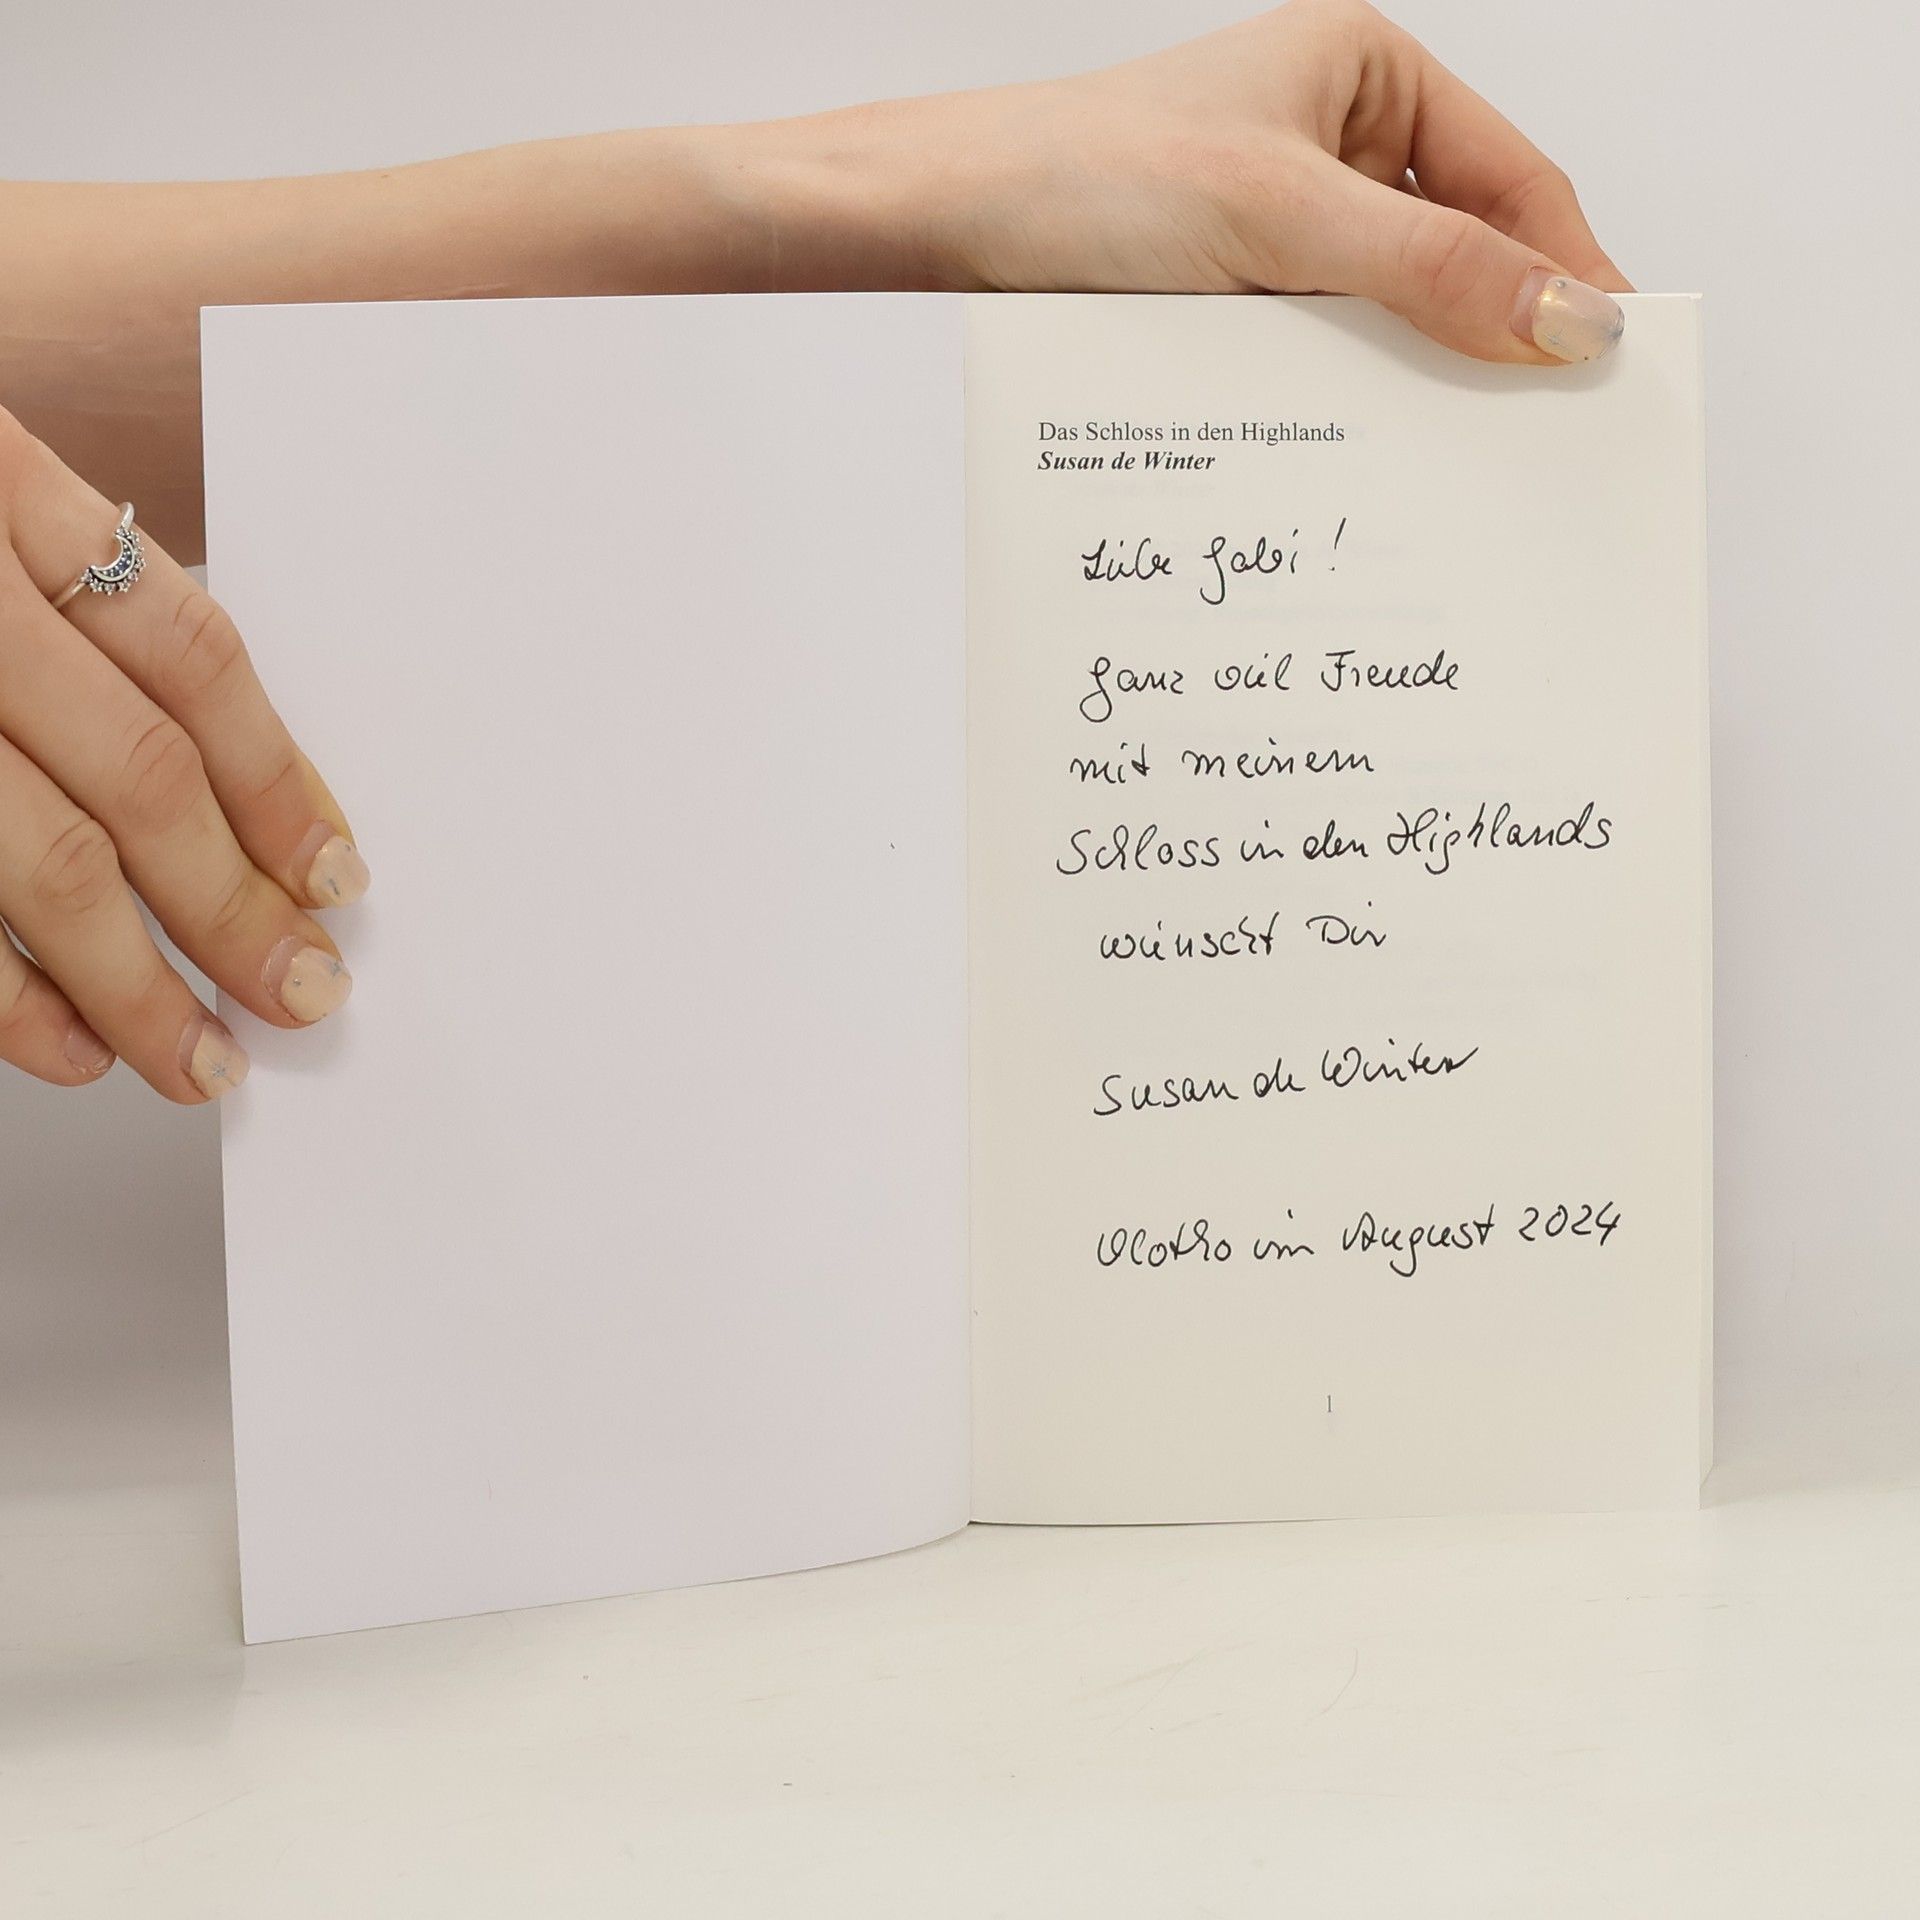 Das Schloss in den Highlands
Susan de Winter
Liebe Gabi !
Ganz viel Freude
mit meinem
Schloss in den Highlands
wünscht Dir
Susan de Winter
Vlotho im August 2024
1